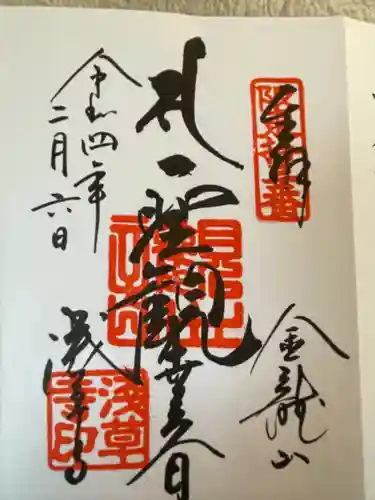 奉拝
坂東拾三番
金龍山
聖観世音
浅草寺
浅草寺印
令和四年
二月六日